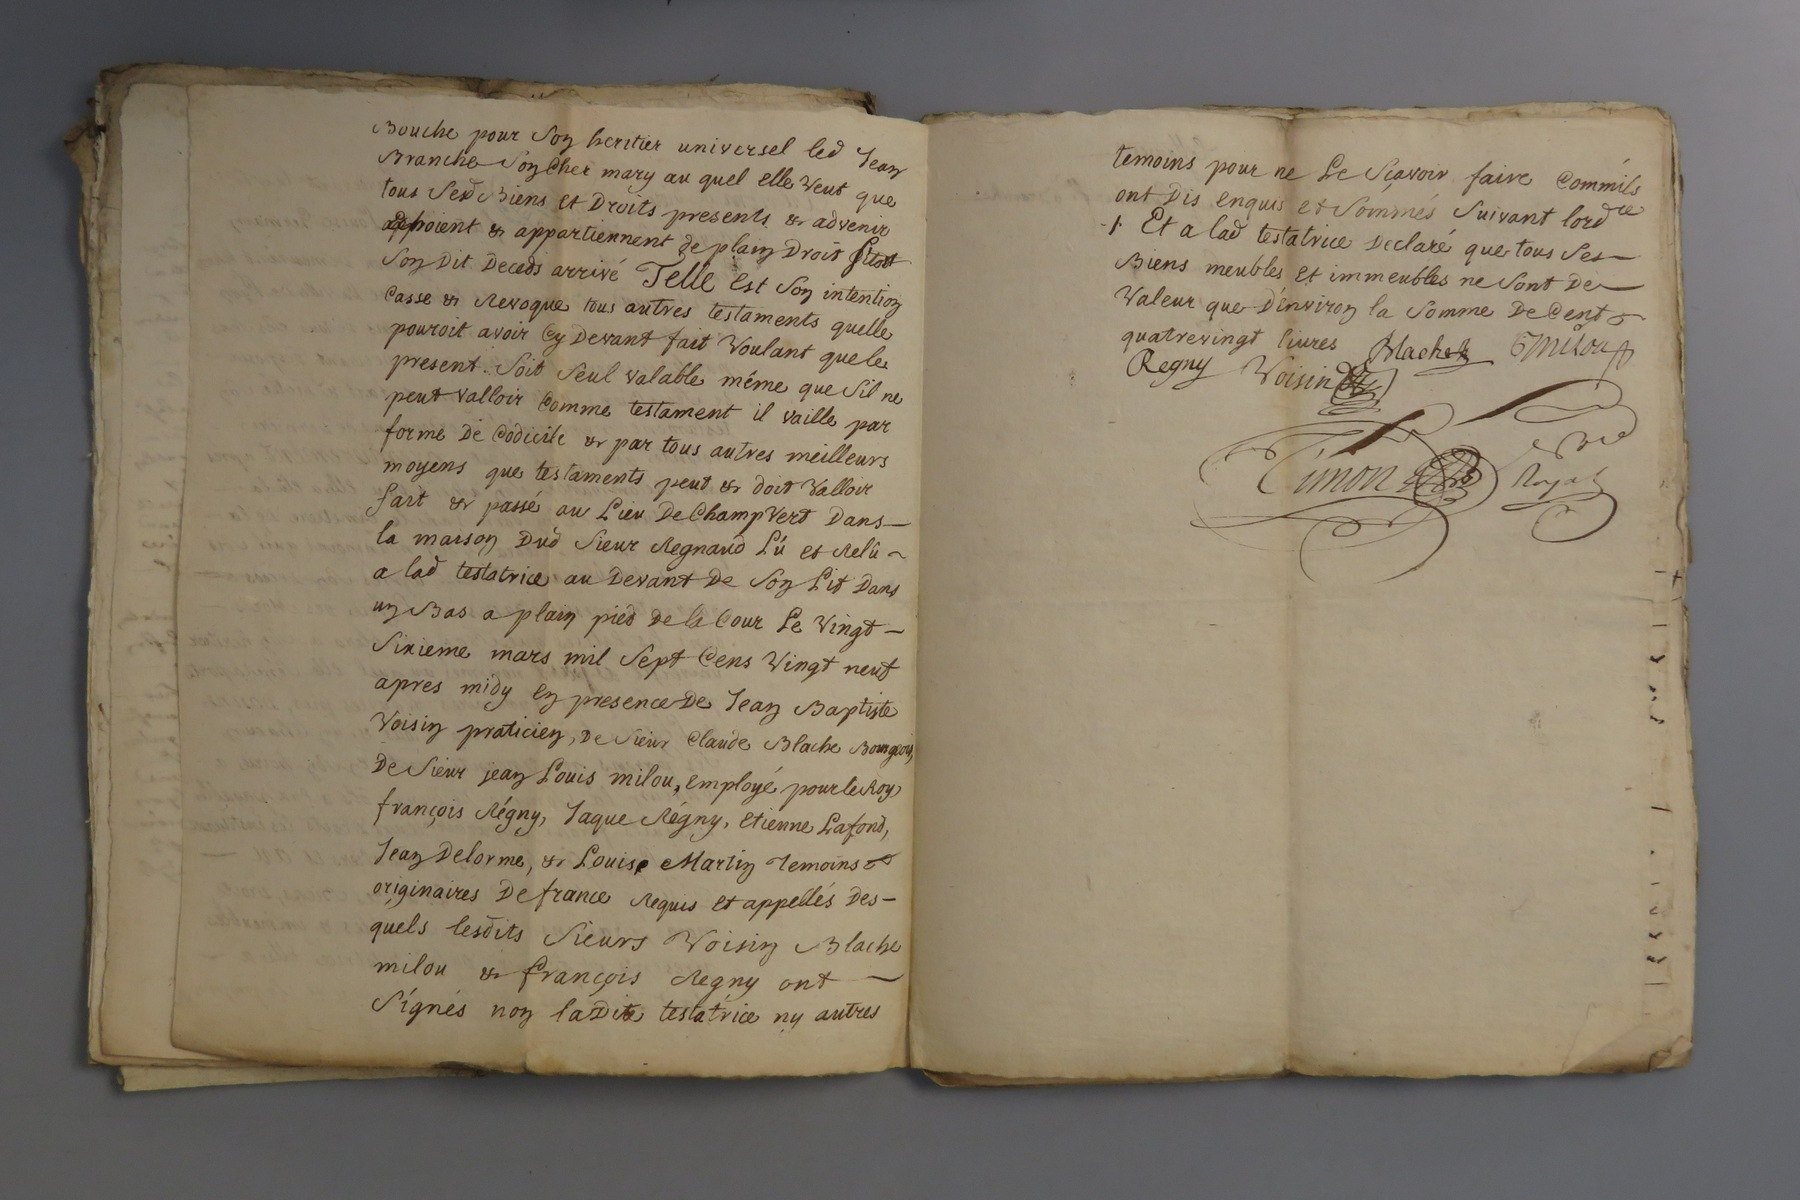 Bouche pour son heritier universel led Jean
Branche son cher mary au quel elle veut que
tous sesd biens et droits presents & advenir
& appartiennent de plain droit sitot
son dit deceds arrivé Telle est son intention
casse & revoque tous autres testaments quelle
pouroit avoir cy devant fait voulant que le
present soit seul valable même que sil ne
peut valloir comme testament il vaille par
forme de codicile & par tous autres meilleurs
moyens que testaments peut & doit valloir
fait & passé au lieu de Champvert dans
la maison dud sieur Regnaud lû et relû
a lad testatrice au devant de son lit dans
un bas a plain pied de la cour le vingt
sixieme mars mil sept cens vingt neuf
apres midy en presence de Jean Baptiste
Voisin praticien, de sieur Claude Blache Bourgeois,
de sieur jean Louis milou, employé pour le Roy
françois Régny, Jaque Régny, etienne Lafond,
Jean Delorme, & Louis Martin temoins
originaires de france requis et appellés des-
quels lesdits sieurs Voisin Blache
milou & françois Regny ont
signés non ladite testatrice ny autres
temoins pour ne le sçavoir faire comm'ils
ont dis enquis et sommés suivant lordce
Et a lad testatrice declaré que tous ses
biens meubles et immeubles ne sont de
valeur que d'environ la somme de cent
quatrevingt livres Blache Milou
Regny Voisin
Timon
Royal